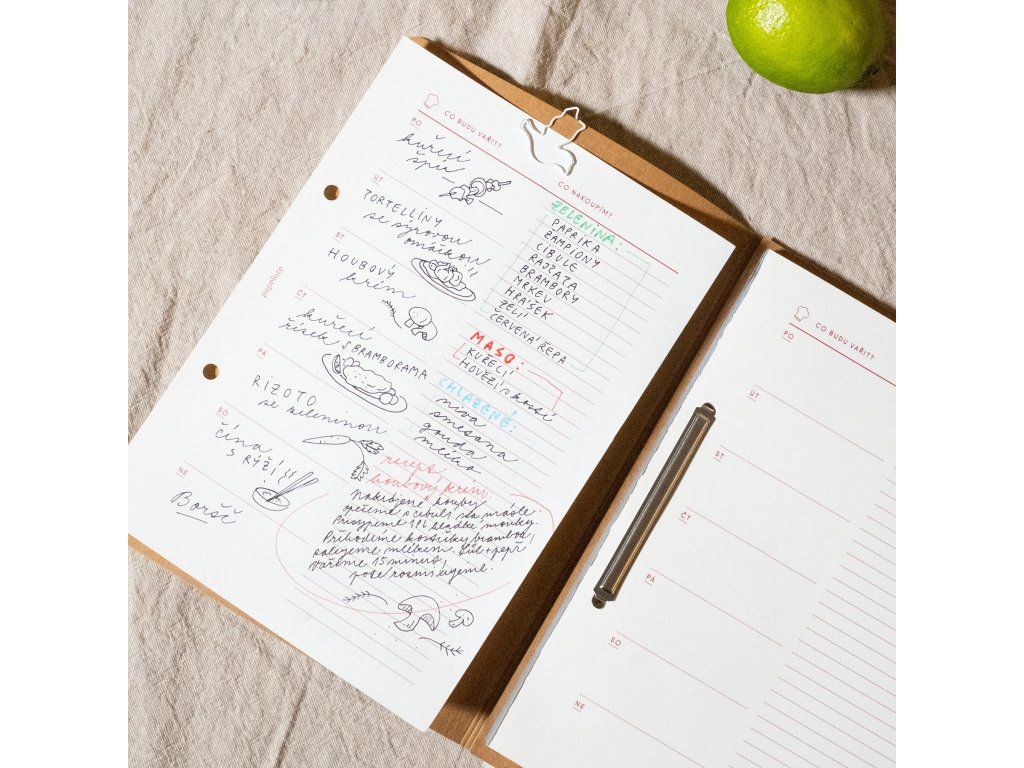 CO BUDU VAŘIT?
PO
kuřecí
špíz
ÚT
TORTELLINY
se sýrovou
omáčkou!!
ST
HOUBOVÝ
krém
ČT
kuřecí
řízek S BRAMBORAMA
PÁ
RIZOTO
se zeleninou
SO
čína
S RÝŽÍ
NE
Boršč
papelote
CO NAKOUPIM?
ZELENINA:
PAPRIKA
ŽAMPIONY
CIBULE
RAJČATA
BRAMBORY
MRKEV
HRÁŠEK
ZELÍ
ČERVENÁ ŘEPA
MASO:
KUŘECÍ
HOVĚZÍ s kostí
CHLAZENÉ:
niva
smetana
gouda
mléko
recept
houbový krém:
Nakrájené houby
opečeme s cibulí na másle.
Přisypeme 1 PL hladké mouky.
Přihodíme kostičky brambor,
zalijeme mlékem. Sůl + pepř
Vaříme 15 minut,
poté rozmixujeme.
CO BUDU VAŘIT?
PO
ÚT
ST
ČT
PÁ
SO
NE